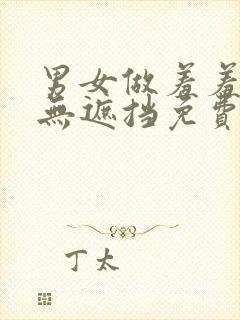 男女做羞羞
無遮挡免費
丁太